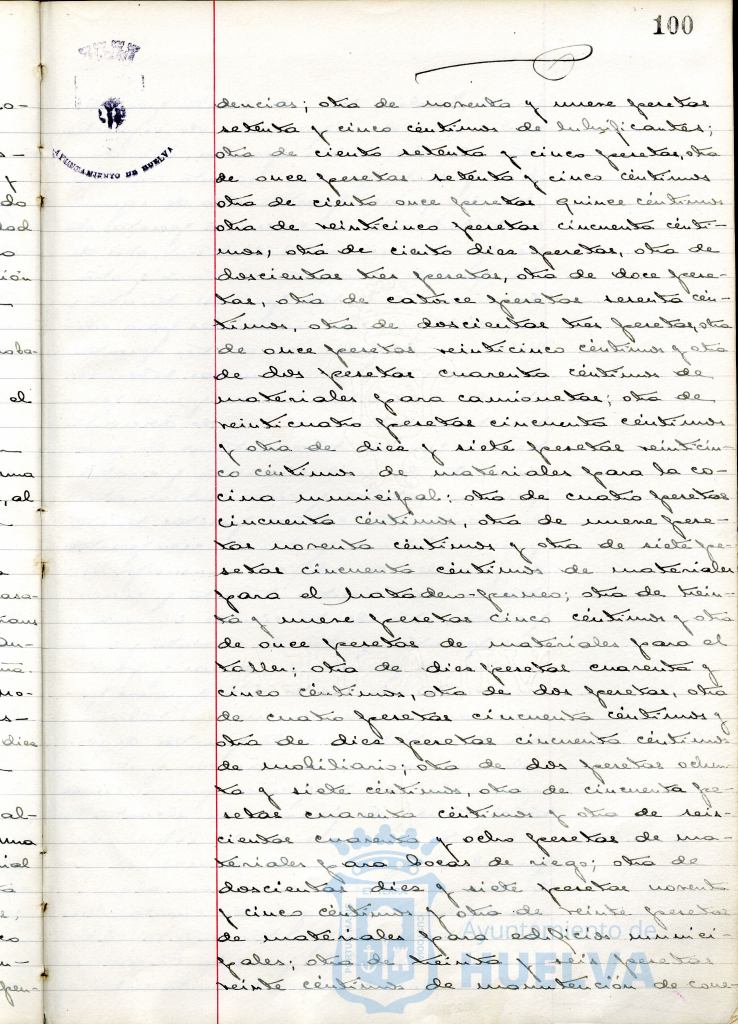 100
AYUNTAMIENTO DE HUELVA
dencias; otra de noventa y nueve pesetas
setenta y cinco céntimos de lubrificantes;
otra de ciento setenta y cinco pesetas, otra
de once pesetas setenta y cinco céntimos
otra de ciento once pesetas quince céntimos
otra de veinticinco pesetas cincuenta cénti-
mos, otra de ciento diez pesetas, otra de
doscientas tres pesetas, otra de doce pese-
tas, otra de catorce pesetas sesenta cén-
timos, otra de doscientas tres pesetas, otra
de once pesetas veinticinco céntimos y otra
de dos pesetas cuarenta céntimos de
materiales para camionetas; otra de
veinticuatro pesetas cincuenta céntimos
y otra de diez y siete pesetas veinticin-
co céntimos de materiales para la co-
cina municipal; otra de cuatro pesetas
cincuenta céntimos, otra de nueve pese-
tas noventa céntimos y otra de siete pe-
setas cincuenta céntimos de materiales
para el Matadero-perneo; otra de trein-
ta y nueve pesetas cinco céntimos y otra
de once pesetas de materiales para el
taller; otra de diez pesetas cuarenta y
cinco céntimos, otra de dos pesetas, otra
de cuatro pesetas cincuenta céntimos y
otra de diez pesetas cincuenta céntimos
de mobiliario; otra de dos pesetas ochen-
ta y siete céntimos, otra de cincuenta pe-
setas cuarenta céntimos y otra de seis-
cientas cuarenta y ocho pesetas de ma-
teriales para bocas de riego; otra de
doscientas diez y siete pesetas noventa
y cinco céntimos y otra de veinte pesetas
de materiales para edificios munici-
pales; otra de treinta y seis pesetas
veinte céntimos de manutención de cone-
Ayuntamiento de
HUELVA